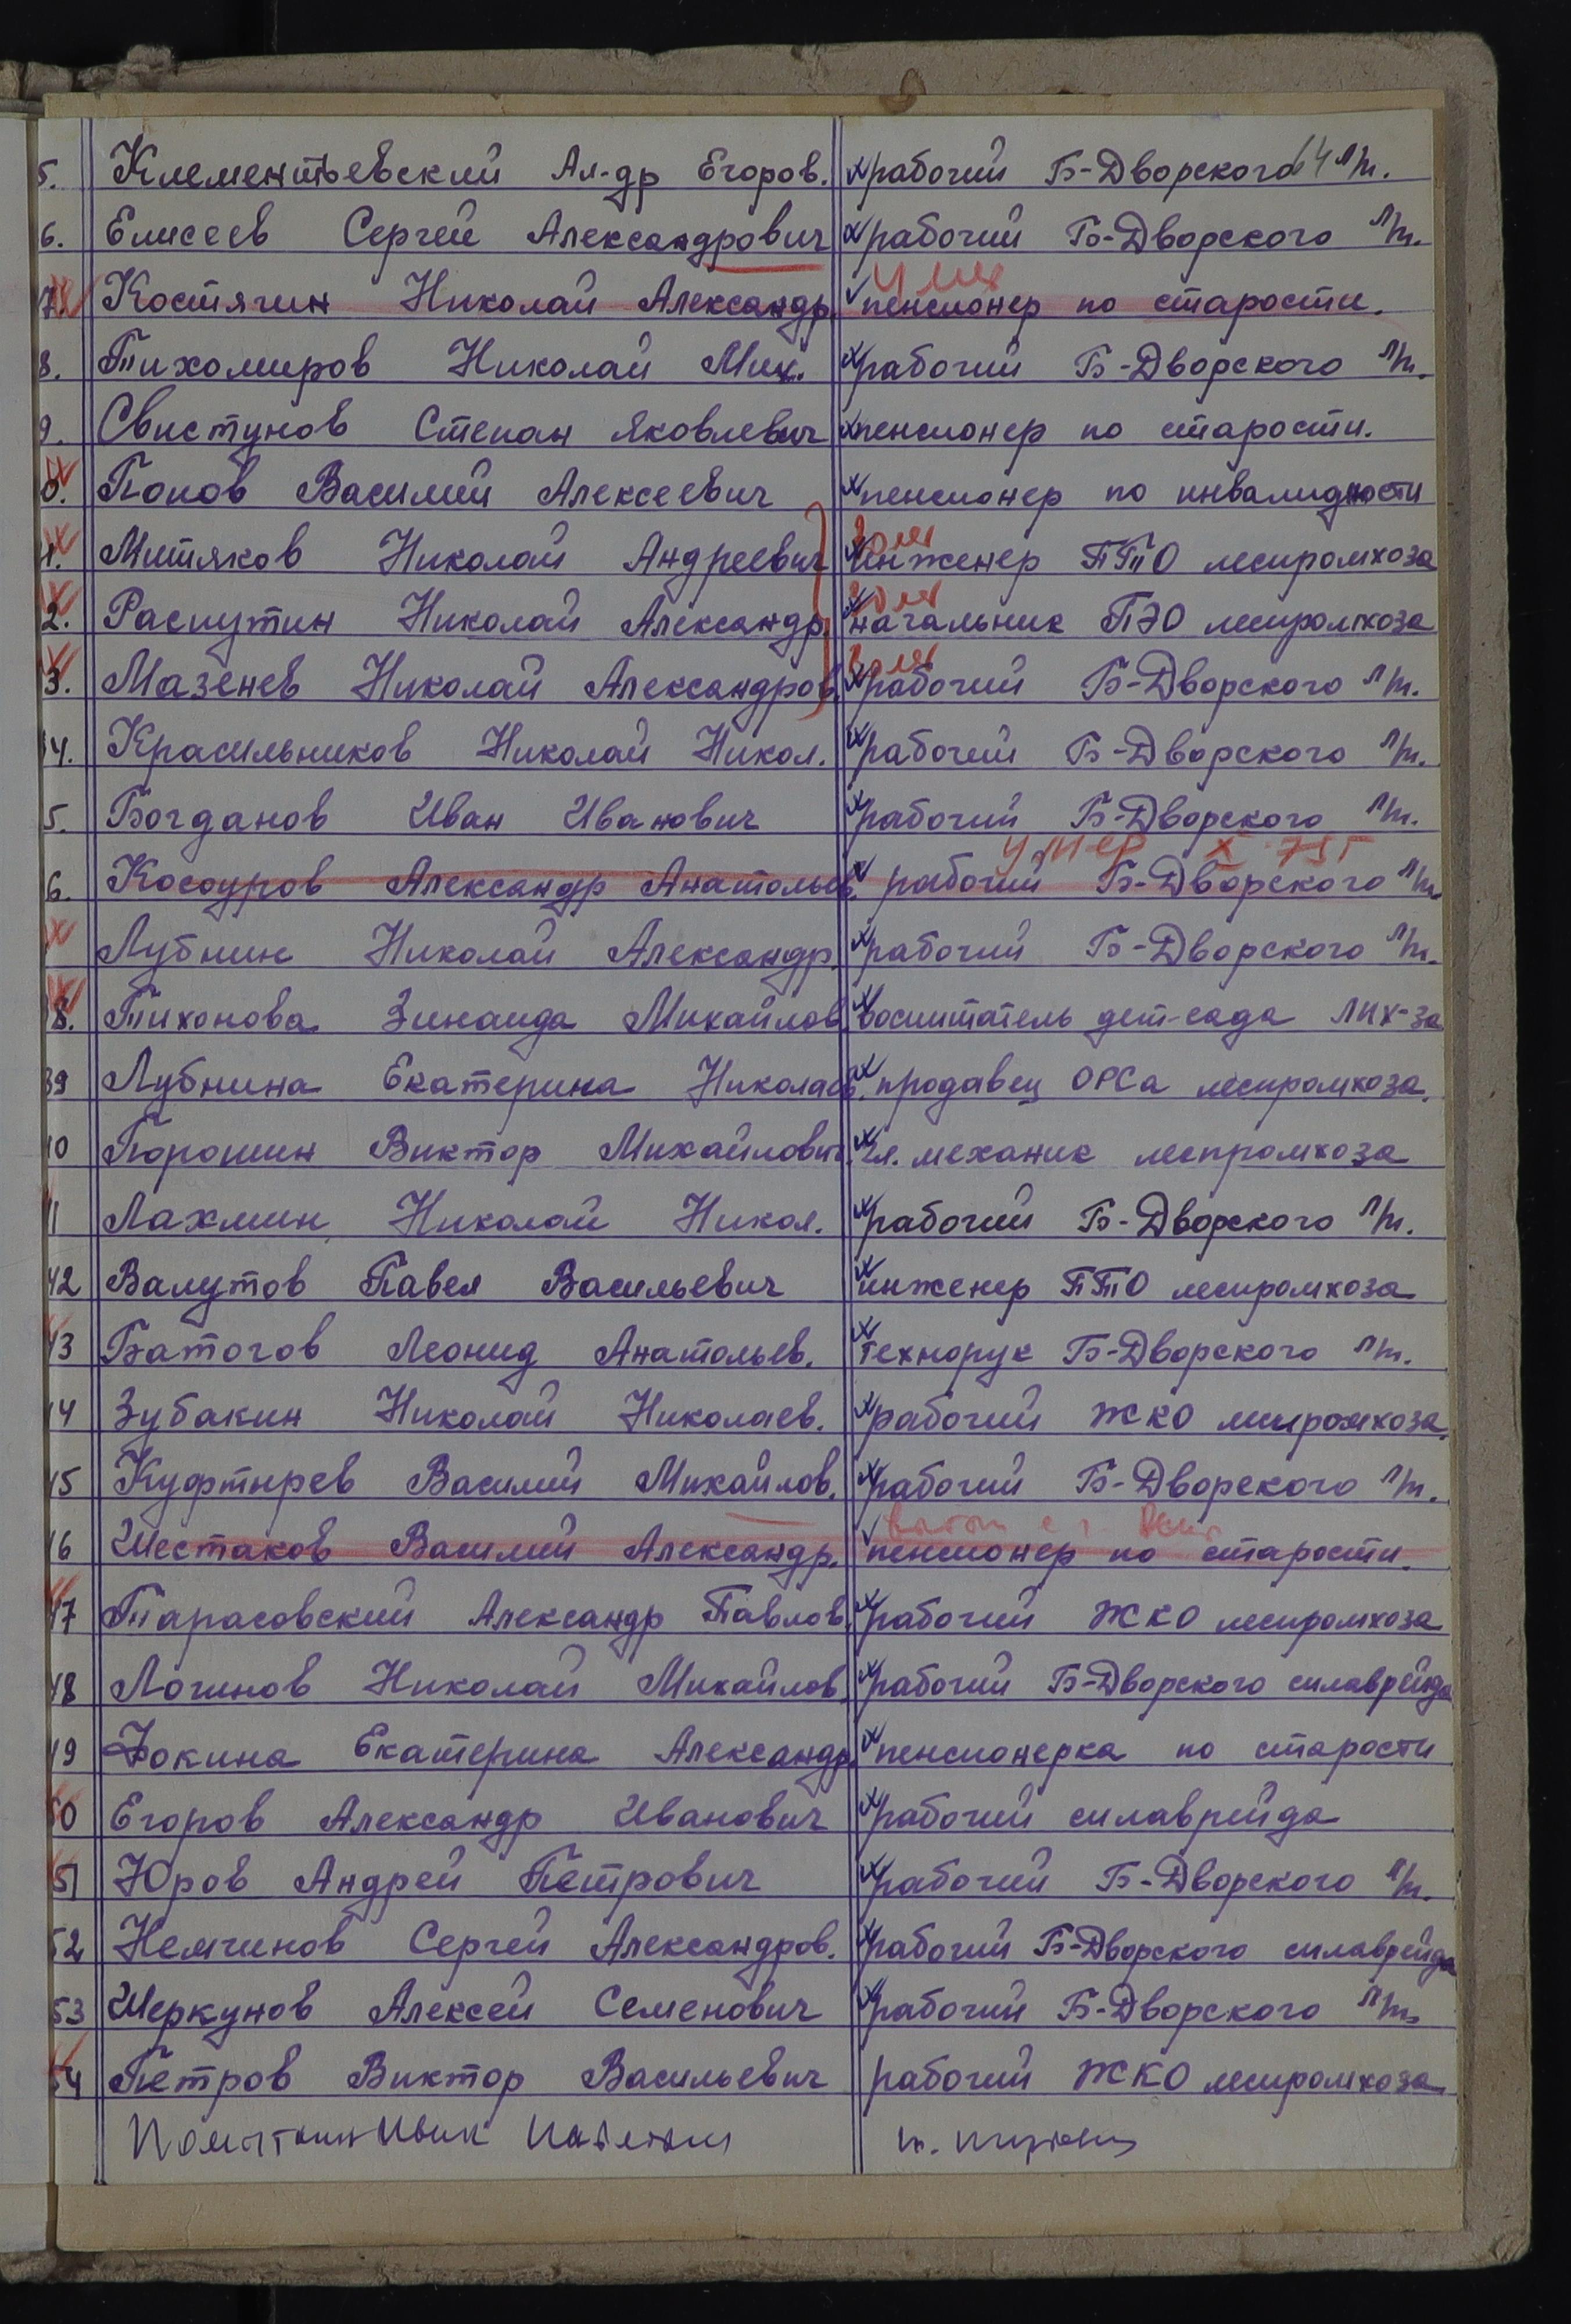 5. Клементьевский Ал-др Егоров. рабочий Б-Дворского л/п. 14
6. Елисеев Сергей Александрович рабочий Б-Дворского л/п.
7. Костягин Николай Александр. пенсионер по старости.
8. Тихомиров Николай Мих. рабочий Б-Дворского л/п.
9. Свистунов Степан Яковлевич пенсионер по старости.
0. Попов Василий Алексеевич пенсионер по инвалидности
1. Митяков Николай Андреевич инженер ПТО леспромхоза
2. Распутин Николай Александр. начальник ПЭО леспромхоза
3. Мазенев Николай Александров. рабочий Б-Дворского л/п.
4. Красильников Николай Никол. рабочий Б-Дворского л/п.
5. Богданов Иван Иванович рабочий Б-Дворского л/п.
умер
6. Косоуров Александр Анатольев. рабочий Б-Дворского л/п.
Лубнин Николай Александр. рабочий Б-Дворского л/п.
38. Тихонова Зинаида Михайлов. воспитатель дет-сада ЛПХ-за
39 Лубнина Екатерина Николаев. продавец ОРСа леспромхоза.
40 Порошин Виктор Михайлович. Гл. механик леспромхоза
41 Лахмин Николай Никол. рабочий Б-Дворского л/п.
42 Валутов Павел Васильевич инженер ПТО леспромхоза
43 Батогов Леонид Анатольев. Технорук Б-Дворского л/п.
44 Зубакин Николай Николаев. рабочий ЖКО леспромхоза.
45 Куфтырев Василий Михайлов. рабочий Б-Дворского л/п.
46 Шестаков Василий Александр. пенсионер по старости.
47 Тарасовский Александр Павлов. рабочий ЖКО леспромхоза
48 Логинов Николай Михайлов. рабочий Б-Дворского сплаврейда
49 Фокина Екатерина Александр. пенсионерка по старости
50 Егоров Александр Иванович рабочий сплаврейда
51 Юров Андрей Петрович рабочий Б-Дворского л/п.
52 Немчинов Сергей Александров. рабочий Б-Дворского сплаврейда
53 Шеркунов Алексей Семенович рабочий Б-Дворского л/п.
54 Петров Виктор Васильевич рабочий ЖКО леспромхоза